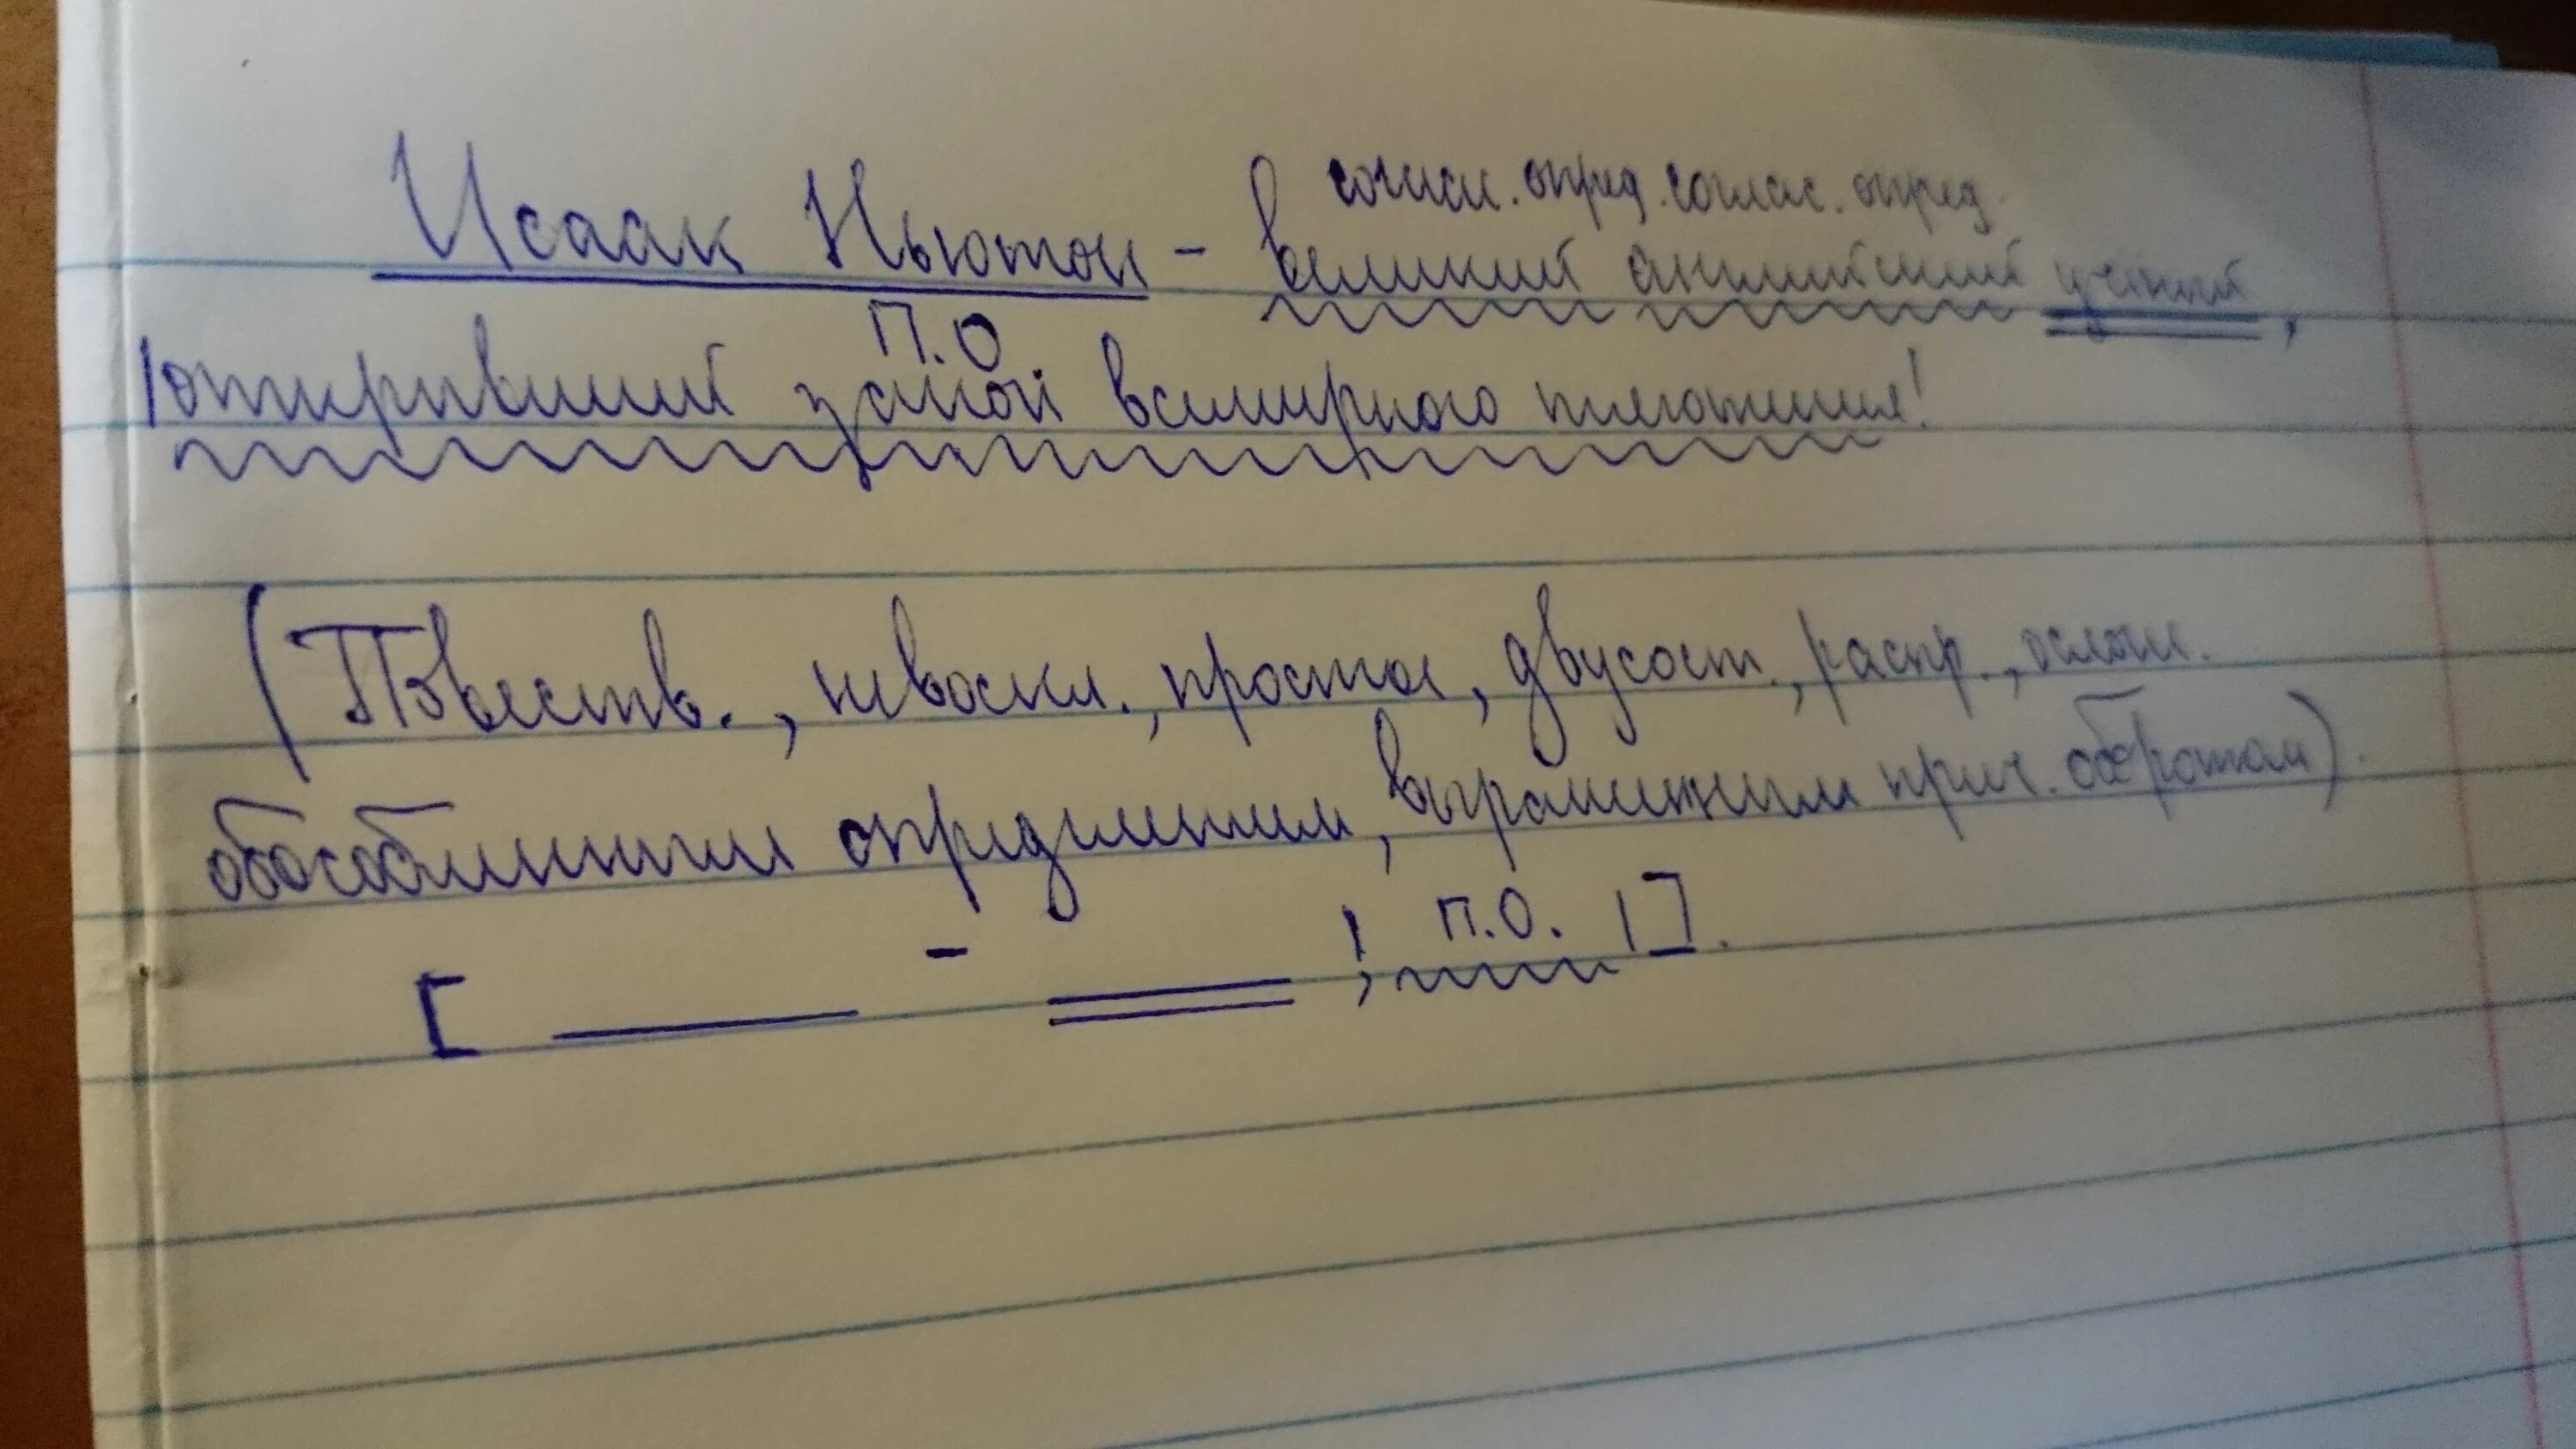 соглас. опред. соглас. опред.
Исаак Ньютон - великий английский ученый,
П.О
|открывший закон всемирного тяготения|
(Повеств., невоскл., простое, двусост., распр., ослож.
обособленным определением, выраженным прич. оборотом).
[ - , | П.О. |].